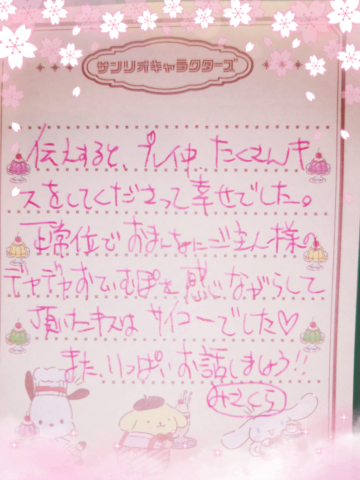 サンリオキャラクターズ
伝えすると、プレイ中、たくさんキ
スをしてくださって幸せでした。
正常位でおまんなにご主人様の
デャデャおていむぽを感じながらして
頂いたキスはサイコーでした♡
また、いっぱいお話しましょう!!
みさくら